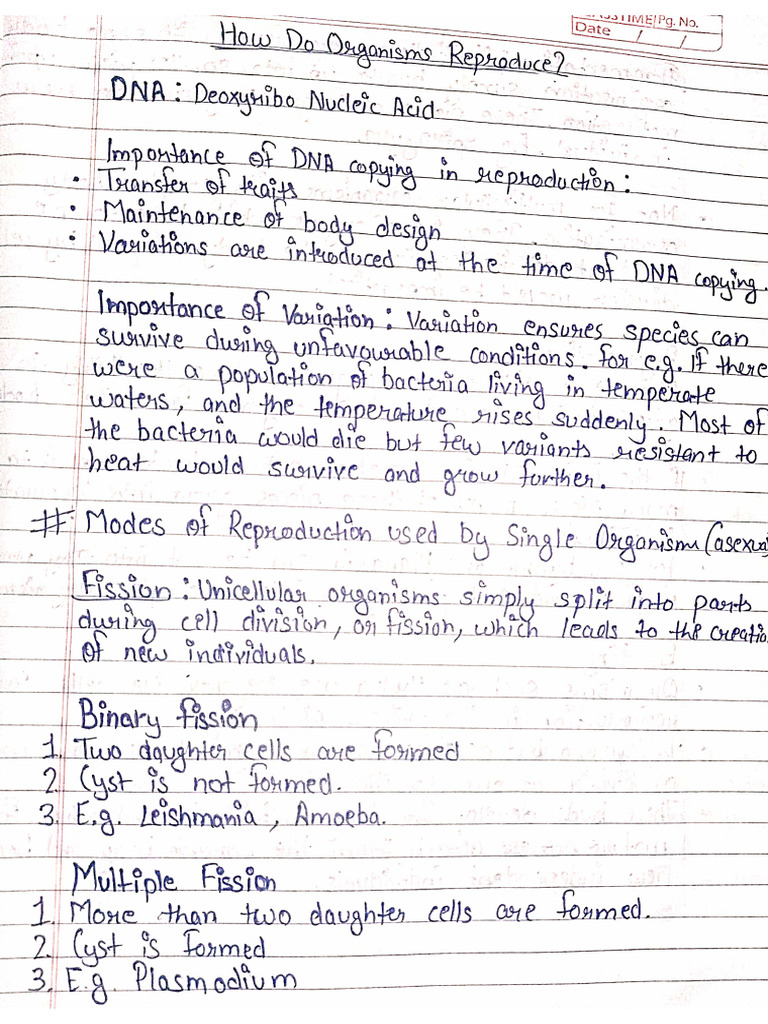 TIME/Pg. No.
Date / /
How Do Organisms Reproduce?
DNA: Deoxyribo Nucleic Acid
Importance of DNA copying in reproduction:
• Transfer of traits
• Maintenance of body design
• Variations are introduced at the time of DNA copying.
Importance of Variation: Variation ensures species can
survive during unfavourable conditions. for e.g. If there
were a population of bacteria living in temperate
waters, and the temperature rises suddenly. Most of
the bacteria would die but few variants resistant to
heat would survive and grow further.
# Modes of Reproduction used by Single Organism (asexual
Fission: Unicellular organisms simply split into parts
during cell division, or fission, which leads to the creatio
of new individuals.
Binary fission
1. Two daughter cells are formed
2. Cyst is not formed.
3. E.g. Leishmania, Amoeba.
Multiple Fission
1. More than two daughter cells are formed.
2. Cyst is formed
3. E.g. Plasmodium